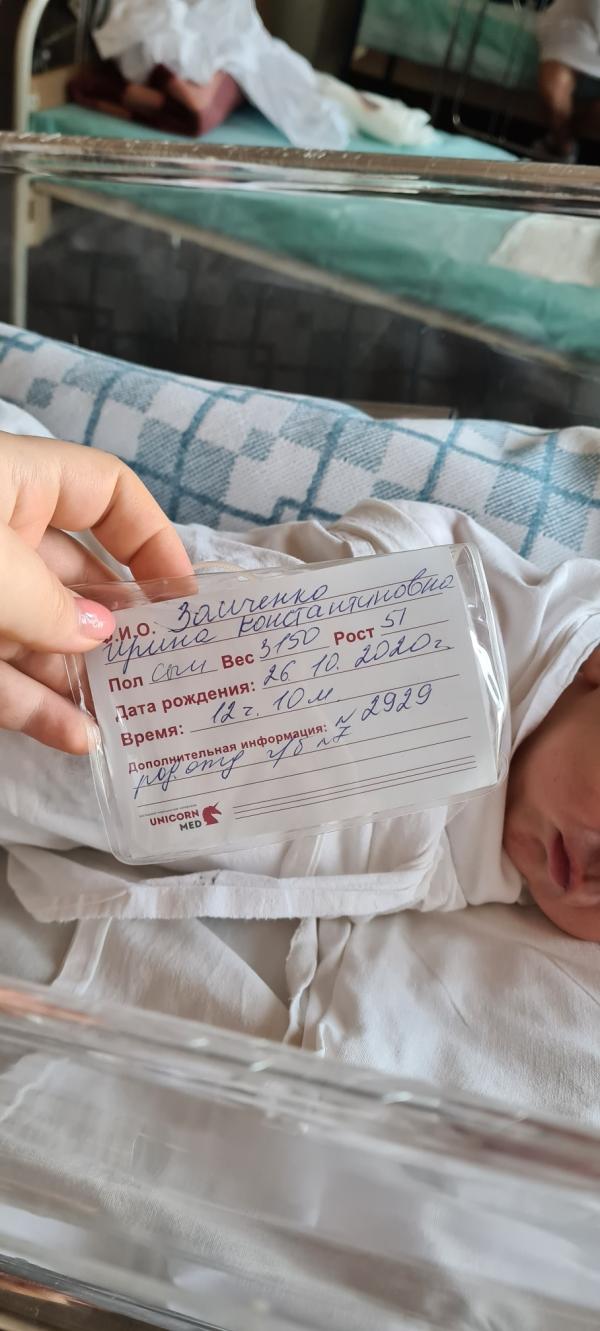 Ф.И.О. Заиченко
Ирина Константиновна
Пол сын Вес 3150 Рост 51
Дата рождения: 26 10. 2020г.
Время: 12 ч. 10 м
Дополнительная информация: № 2929
род отд г/б №7
UNICORN
MED